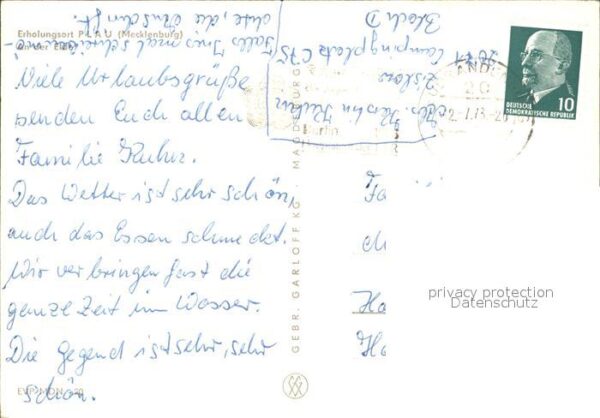 Erholungsort PLAU (Mecklenburg)
An der Elde
Viele Urlaubsgrüße
senden Euch allen
Familie Kuhr.
Das Wetter ist sehr schön,
auch das Essen schmeckt.
Wir verbringen fast die
ganze Zeit im Wasser.
Die Gegend ist sehr, sehr
schön.
Falls Ihr uns mal schreiben
die Anschrift:
Kerstin
2861
Campingplatz C 75
Block D
GEBR. GARLOFF KG MAGDEBURG
Fa
ch
Ha
Ha
10
DEUTSCHE
DEMOKRATISCHE REPUBLIK
20
privacy protection
Datenschutz